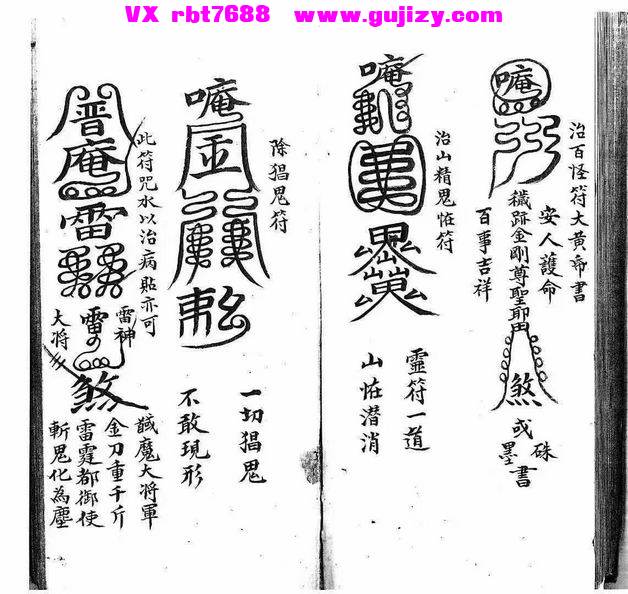 VX rbt7688 www.gujizy.com
治百怪符大黄帋書
安人護命
唵
穢跡金剛尊聖
煞
百事吉祥
硃
或墨書
治山精鬼怪符
唵
靈符一道
山怪潜消
除猖鬼符
唵
一切猖鬼
不敢現形
此符咒水以治病貼亦可
普庵
雷
雷神
雷
大将
煞
馘魔大将軍
金刀重千斤
雷霆都御使
斬鬼化為塵